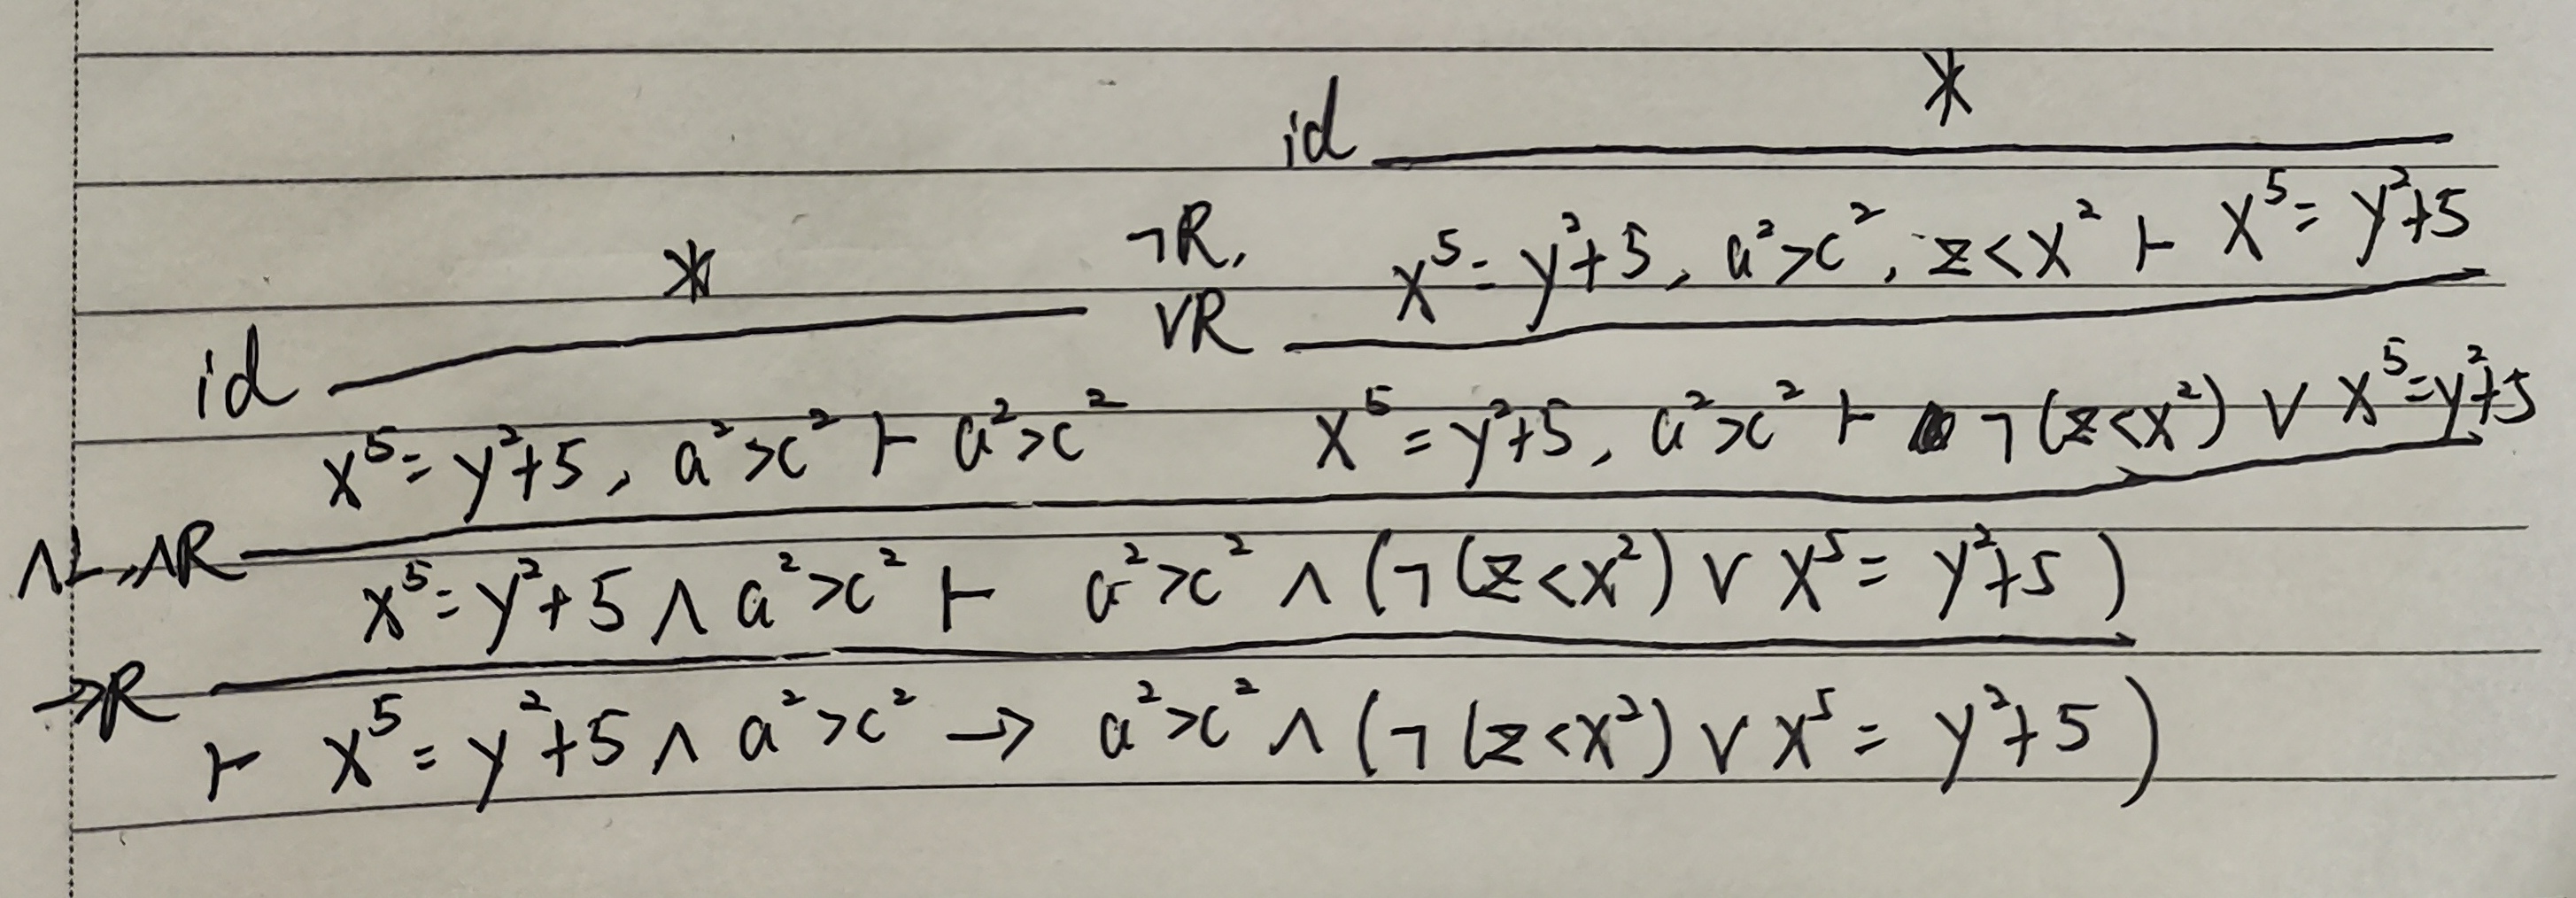 *
id
¬R, x⁵ = y²+5, a²>c², z<x² ⊢ x⁵ = y²+5
*
∨R
id
x⁵ = y²+5, a²>c² ⊢ a²>c² x⁵ = y²+5, a²>c² ⊢ ¬(z<x²) ∨ x⁵=y²+5
∧L, ∧R
x⁵ = y²+5 ∧ a²>c² ⊢ a²>c² ∧ (¬(z<x²) ∨ x⁵ = y²+5)
→R
⊢ x⁵ = y²+5 ∧ a²>c² → a²>c² ∧ (¬(z<x²) ∨ x⁵ = y²+5)